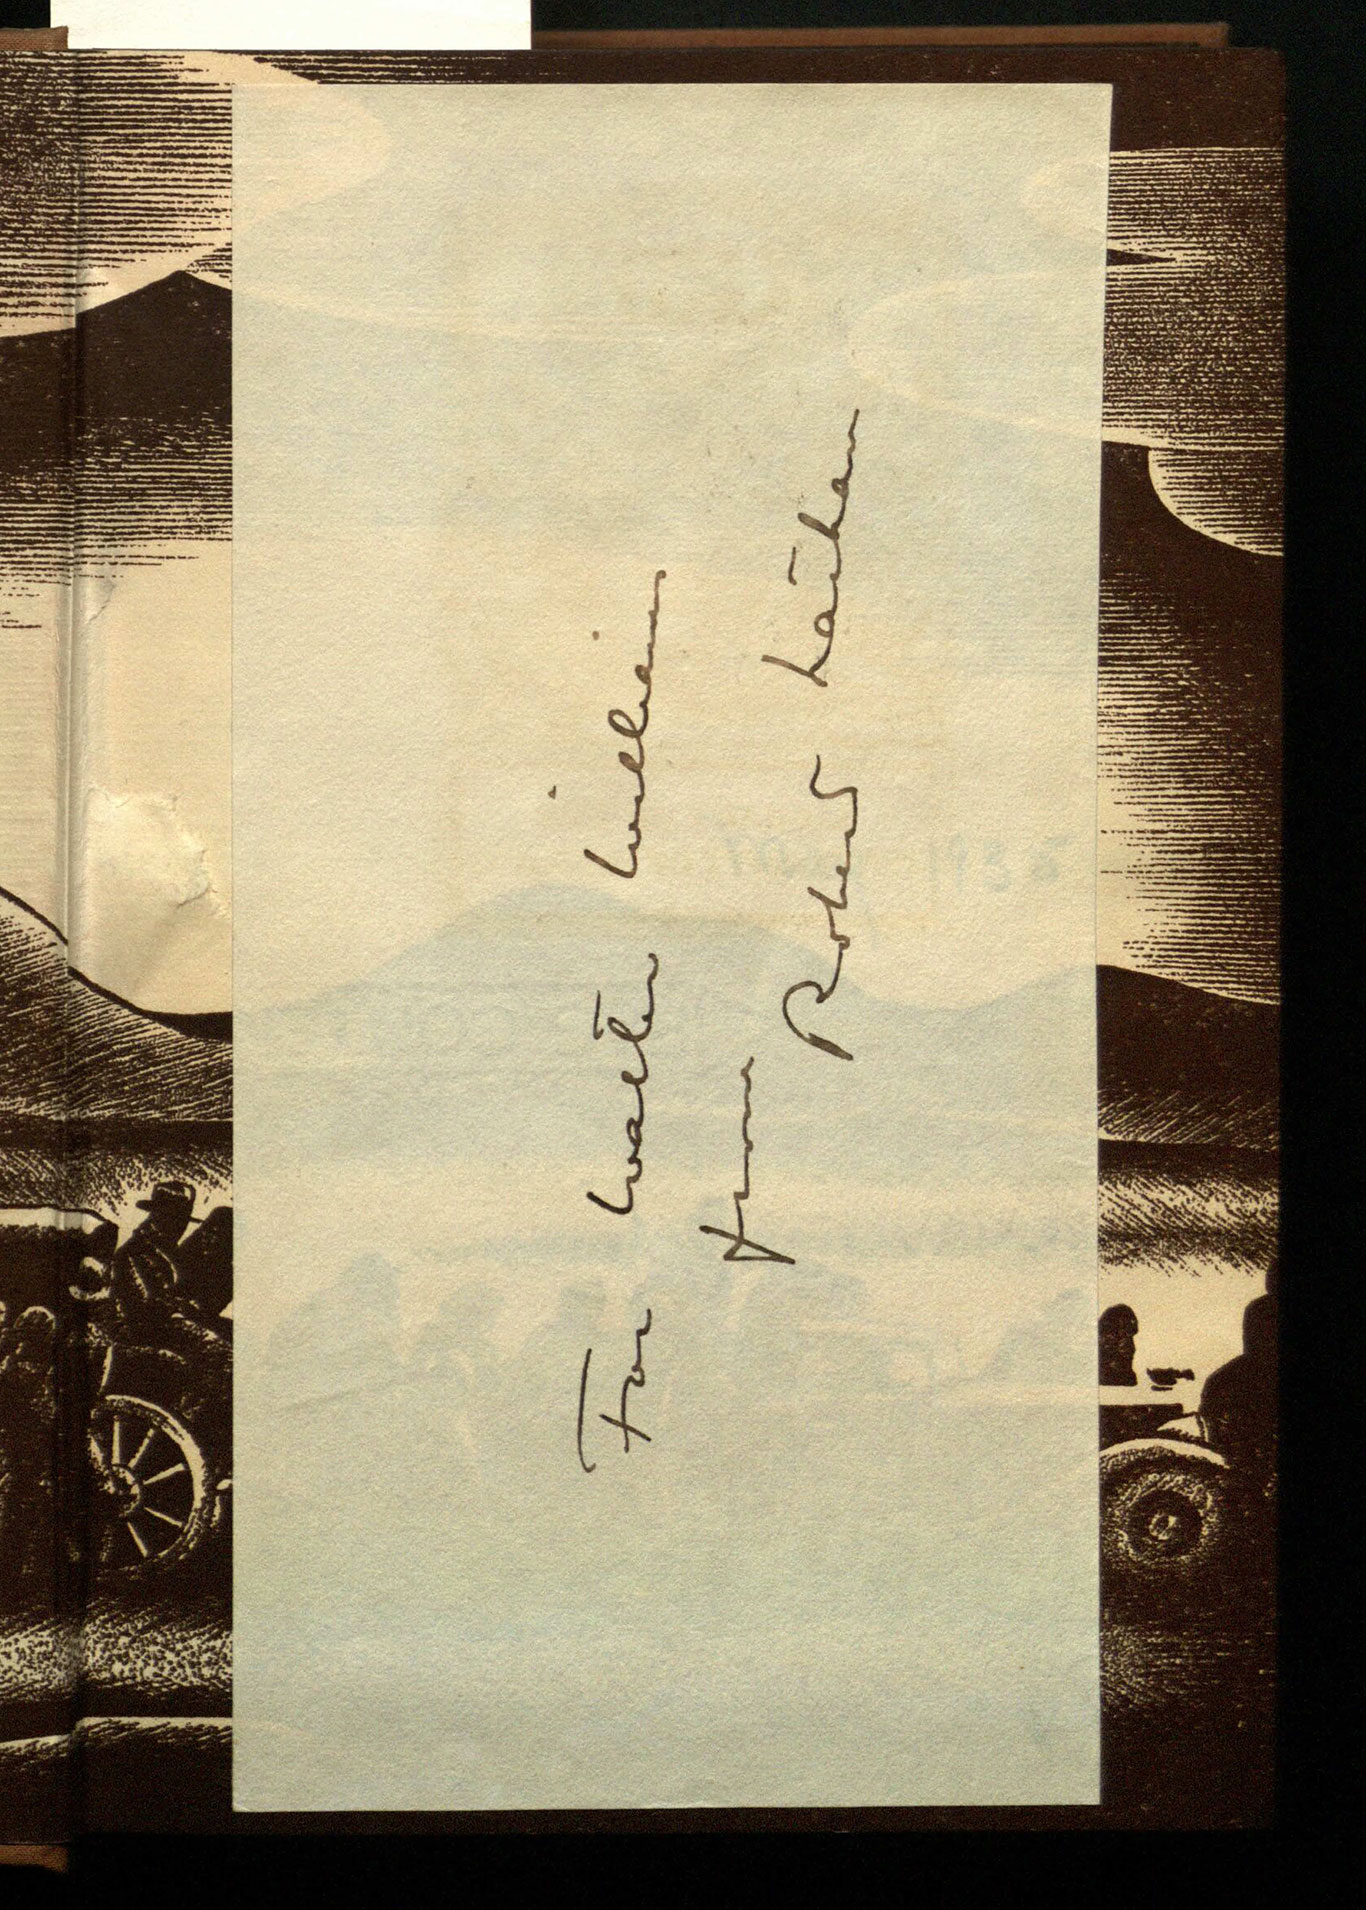 For Walter William
from Robert Latham